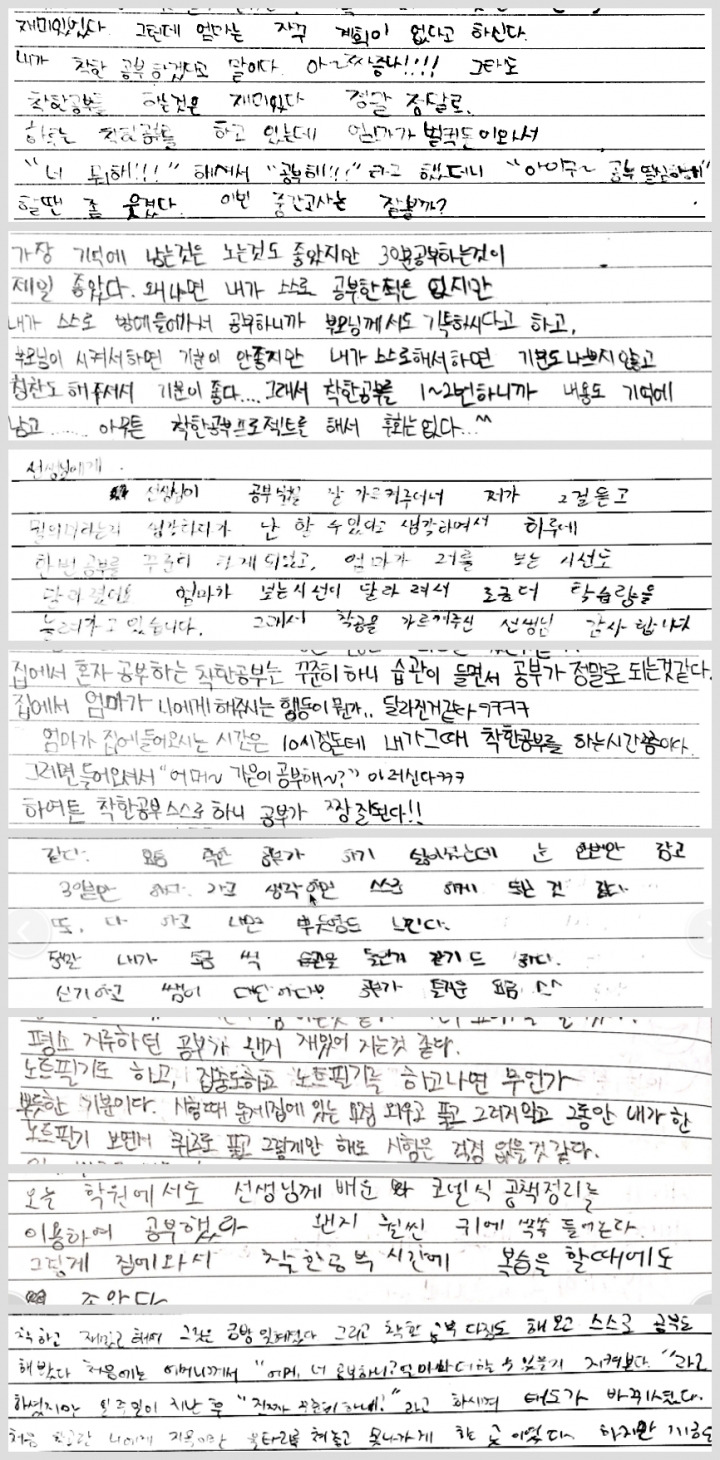 재미있었다. 그런데 엄마는 자꾸 계획이 없다고 하신다.
내가 착한 공부하겠다고 말이다. 아~짜증나!!!! 그래도
착한공부를 하는것은 재미있다 정말 정말로.
하루는 착한공부를 하고 있는데 엄마가 벌컥 들어와서
"너 뭐해!!!" 해서 "공부해!!!" 라고 했더니 "아이구~ 공부 열심히해"
할땐 좀 웃겼다. 이번 중간고사는 잘볼까?
가장 기억에 남는것은 노는것도 좋았지만 30분공부하는것이
제일 좋았다. 왜냐면 내가 스스로 공부한적은 없지만
내가 스스로 방에들어가서 공부하니까 부모님께서도 기특하시다고 하고,
부모님이 시켜서하면 기분이 안좋지만 내가 스스로해서하면 기분도 나쁘지 않고
칭찬도 해주셔서 기분이 좋다.... 그래서 착한공부를 1~2번하니까 내용도 기억에
남고...... 아무튼 착한공부프로젝트를 해서 후회는 없다...^^
선생님에게
선생님이 공부 잘 가르켜주더니 저가 그걸듣고
난 할 수있다고 생각하며서 하루에
한번 공부를 꾸준히 하게 되었고, 엄마가 저를 보는 시선도
달라졌어요 엄마가 보는시선이 달라져서 조금더 학습량을
늘려가고 있습니다. 그래서 착공을 가르켜주신 선생님 감사합니다
집에서 혼자 공부하는 착한공부는 꾸준히 하니 습관이 들면서 공부가 정말로 되는것같다.
집에서 엄마가 나에게 해주시는 행동이 뭔가.. 달라진거같다ㅋㅋㅋㅋ
엄마가 집에들어오시는 시간은 10시정돈데 내가그때 착한공부를 하는시간쯤이다.
그러면 들어오셔서 "어머~ 가은이 공부해~?" 이러신다ㅋㅋㅋ
하여튼 착한공부 스스로 하니 공부가 짱 잘된다!!
같다. 요즘 착한 공부가 하기 싫어지는데 눈 한번만 감고
30분만 하자. 라고 생각하면 스스로 하게 되는 것 같다.
또, 다 하고 나면 뿌듯함도 느낀다.
정말 내가 조금 씩 습관을 들인거 같기도 하다.
신기하고 쌤이 대단하다! 공부가 즐거운 요즘 ^^
평소 지루하던 공부가 왠지 재밌어 지는것 같다.
노트필기도 하고, 집중도하고 노트필기를 하고나면 무언가
뿌듯한 기분이다. 시험때 문제집에 있는 요점 외우고 풀고 그러지않고 그동안 내가 한
노트필기 보면서 퀴즈로 풀고 그렇게만 해도 시험은 걱정 없을것같다.
오늘 학원에서도 선생님께 배운 코넬식 공책정리를
이용하여 공부했다 왠지 훨씬 귀에 쏙쏙 들어온다.
그렇게 집에와서 착한공부 시간에 복습을 할때에도
좋았다
착하고 재밌고 해서 그것은 금방 잊혀졌다 그리고 착한 공부 다짐도 해보고 스스로 공부도
해봤다 처음에는 어머니께서 "어머, 너 공부하니? 얼마나 더하는 수 있을지 지켜본다." 라고
하셨지만 일주일이 지난 후 "진짜 꾸준히 하네!" 라고 하시며 태도가 바뀌셨다.
처음 나에게 지옥이란 울타리를 쳐놓고 못나가게 한 곳 이였다. 하지만 지금은